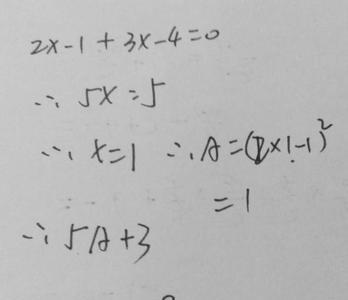 2x-1+3x-4=0
∴ 5x=5
∴ x=1 ∴ A=(2×1-1)²
=1
∴ 5A+3